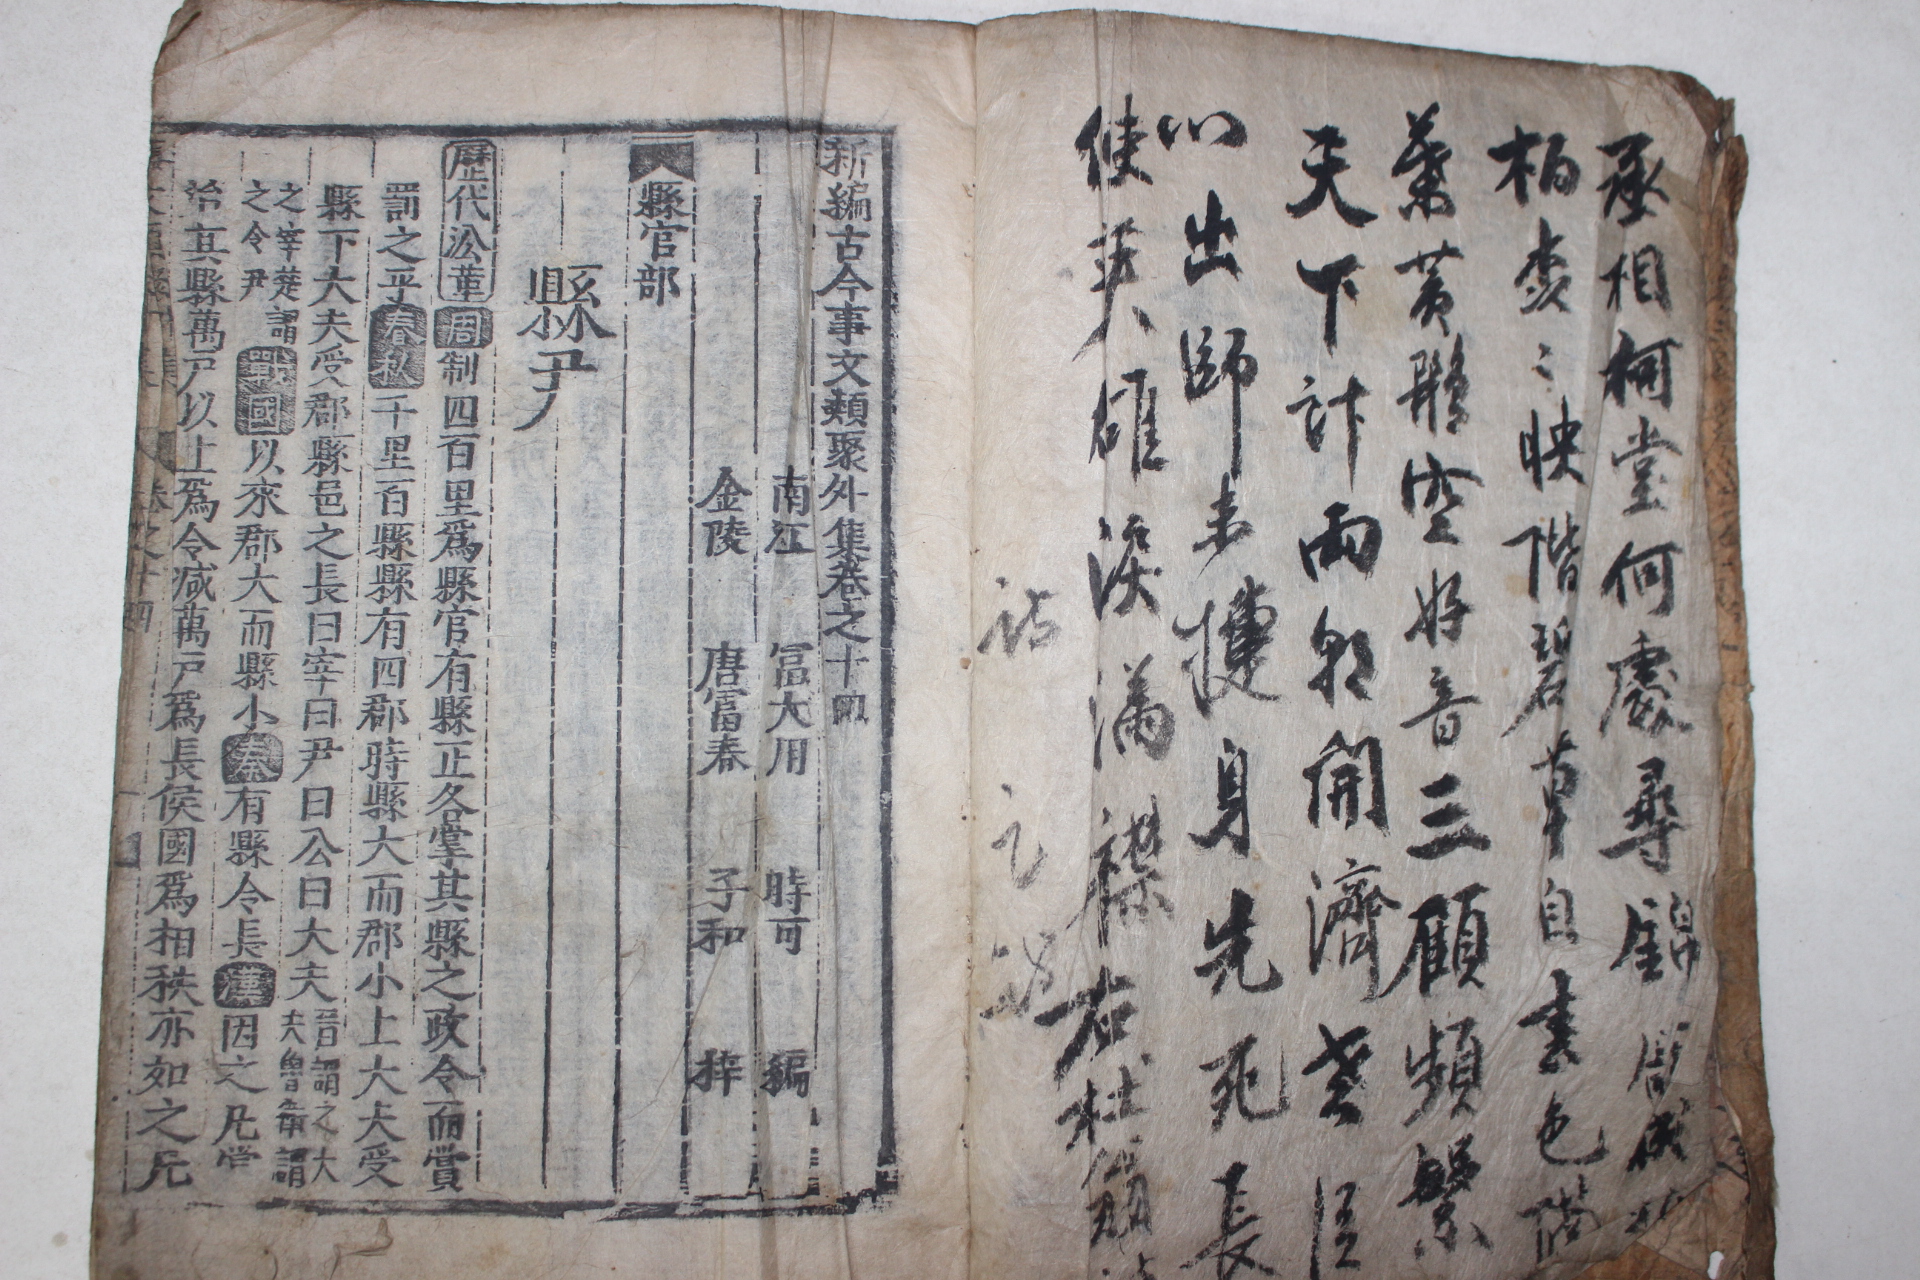 丞相柯堂何處尋錦
栢森〻映階碧草自春色
葉黃鸝空好音三顧頻繁
天下計兩朝開濟老臣
出師未捷身先死長
使英雄淚滿襟右杜
新編古今事文類聚外集卷之十四
南江 富大用 時可 編
金陵 唐富春 子和 梓
縣官部
縣尹
歷代沿革周制四百里爲縣官有縣正各掌其縣之政令而賞
罰之乎春秋千里百縣縣有四郡時縣大而郡小上大夫受
縣下大夫受郡縣邑之長曰宰曰尹曰公曰大夫晉謂之大夫魯衛謂
之宰楚謂之令尹戰國以來郡大而縣小秦有縣令長漢因之凡
治其縣萬戶以上爲令减萬戶爲長侯國爲相秩亦如之凡